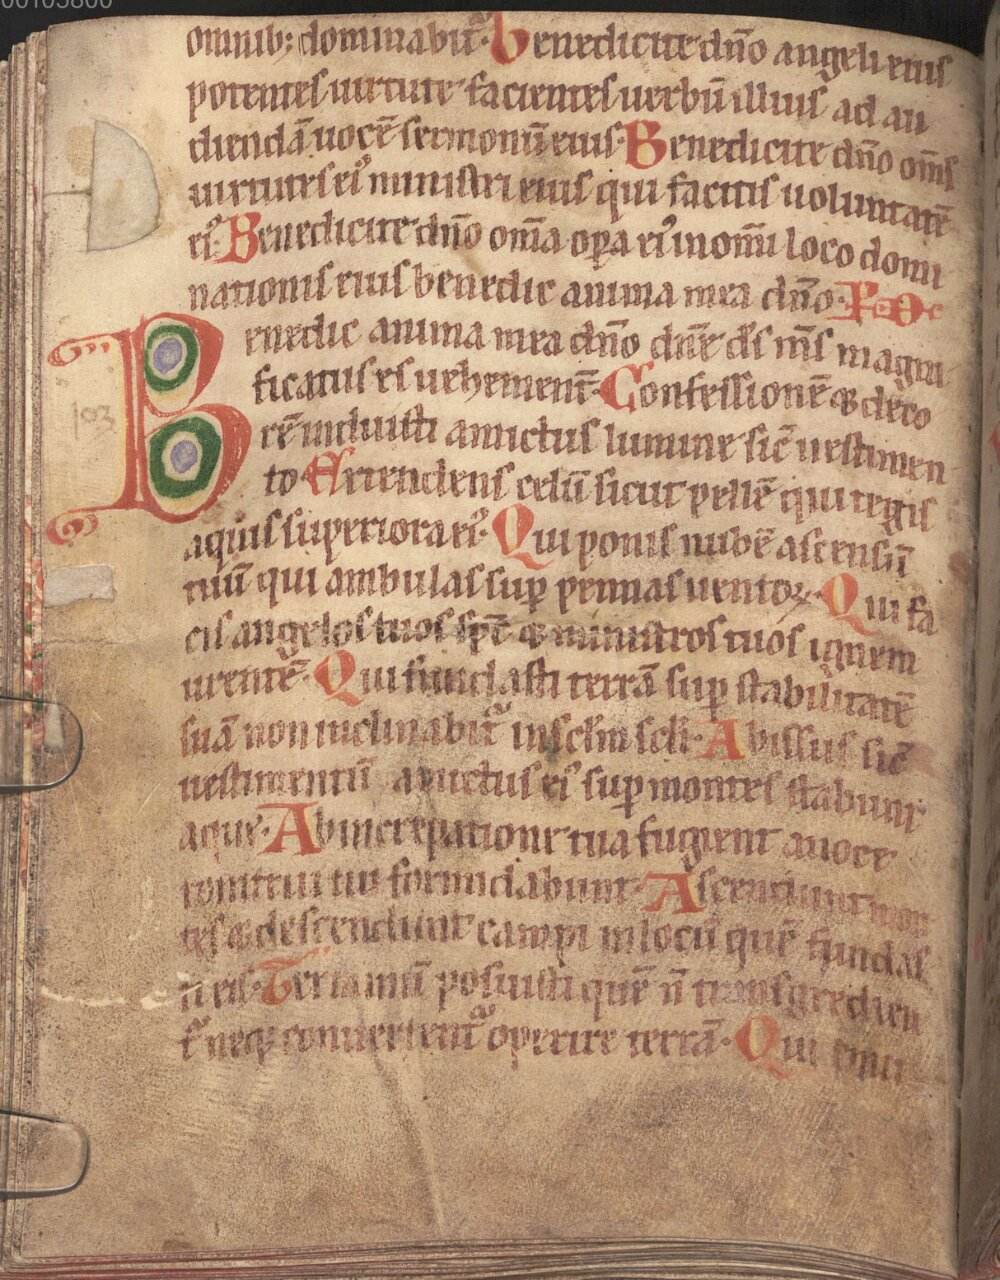 00105800
omnib; dominabit᷑. Benedicite dn̄o angeli eius
potentes uirtute facientes uerbū illius ad au
diendā uocē sermonū eius. Benedicite dn̄o om̄s
uirtutes ei᷒ ministri eius qui facitis uoluntatē
ei᷒. Benedicite dn̄o om̄a oꝑa ei᷒ in om̄i loco domi
nationis eius benedic anima mea dn̄o.
Benedic anima mea dn̄o dn̄e ds̄ ms̄ magni
ficatus es uehement̄. Confessionē & deco
rē induisti amictus lumine sic̄ uestimen
to Extendens celū sicut pellē qui tegis
aquis superiora ei᷒. Qui ponis nubē ascensū
tuū qui ambulas suꝑ pennas uentoꝝ. Qui fa
cis angelos tuos sp̄c̄ & ministros tuos ignem
urentē. Qui fundasti terrā suꝑ stabilitatē
103
suā non inclinabit᷑ in sc̄lm sc̄li. Abissus sic̄
uestimentū amictus ei᷒ suꝑ montes stabunt
aque. Ab increpatione tua fugient a uoce
tonitrui tui formidabunt. Ascendunt mon
tes & descendunt campi in locū quē fundas
ti eis. Terminū posuisti quē n̄ transgredien
t᷑ neqꝫ conuertent᷑ operire terrā. Qui emi